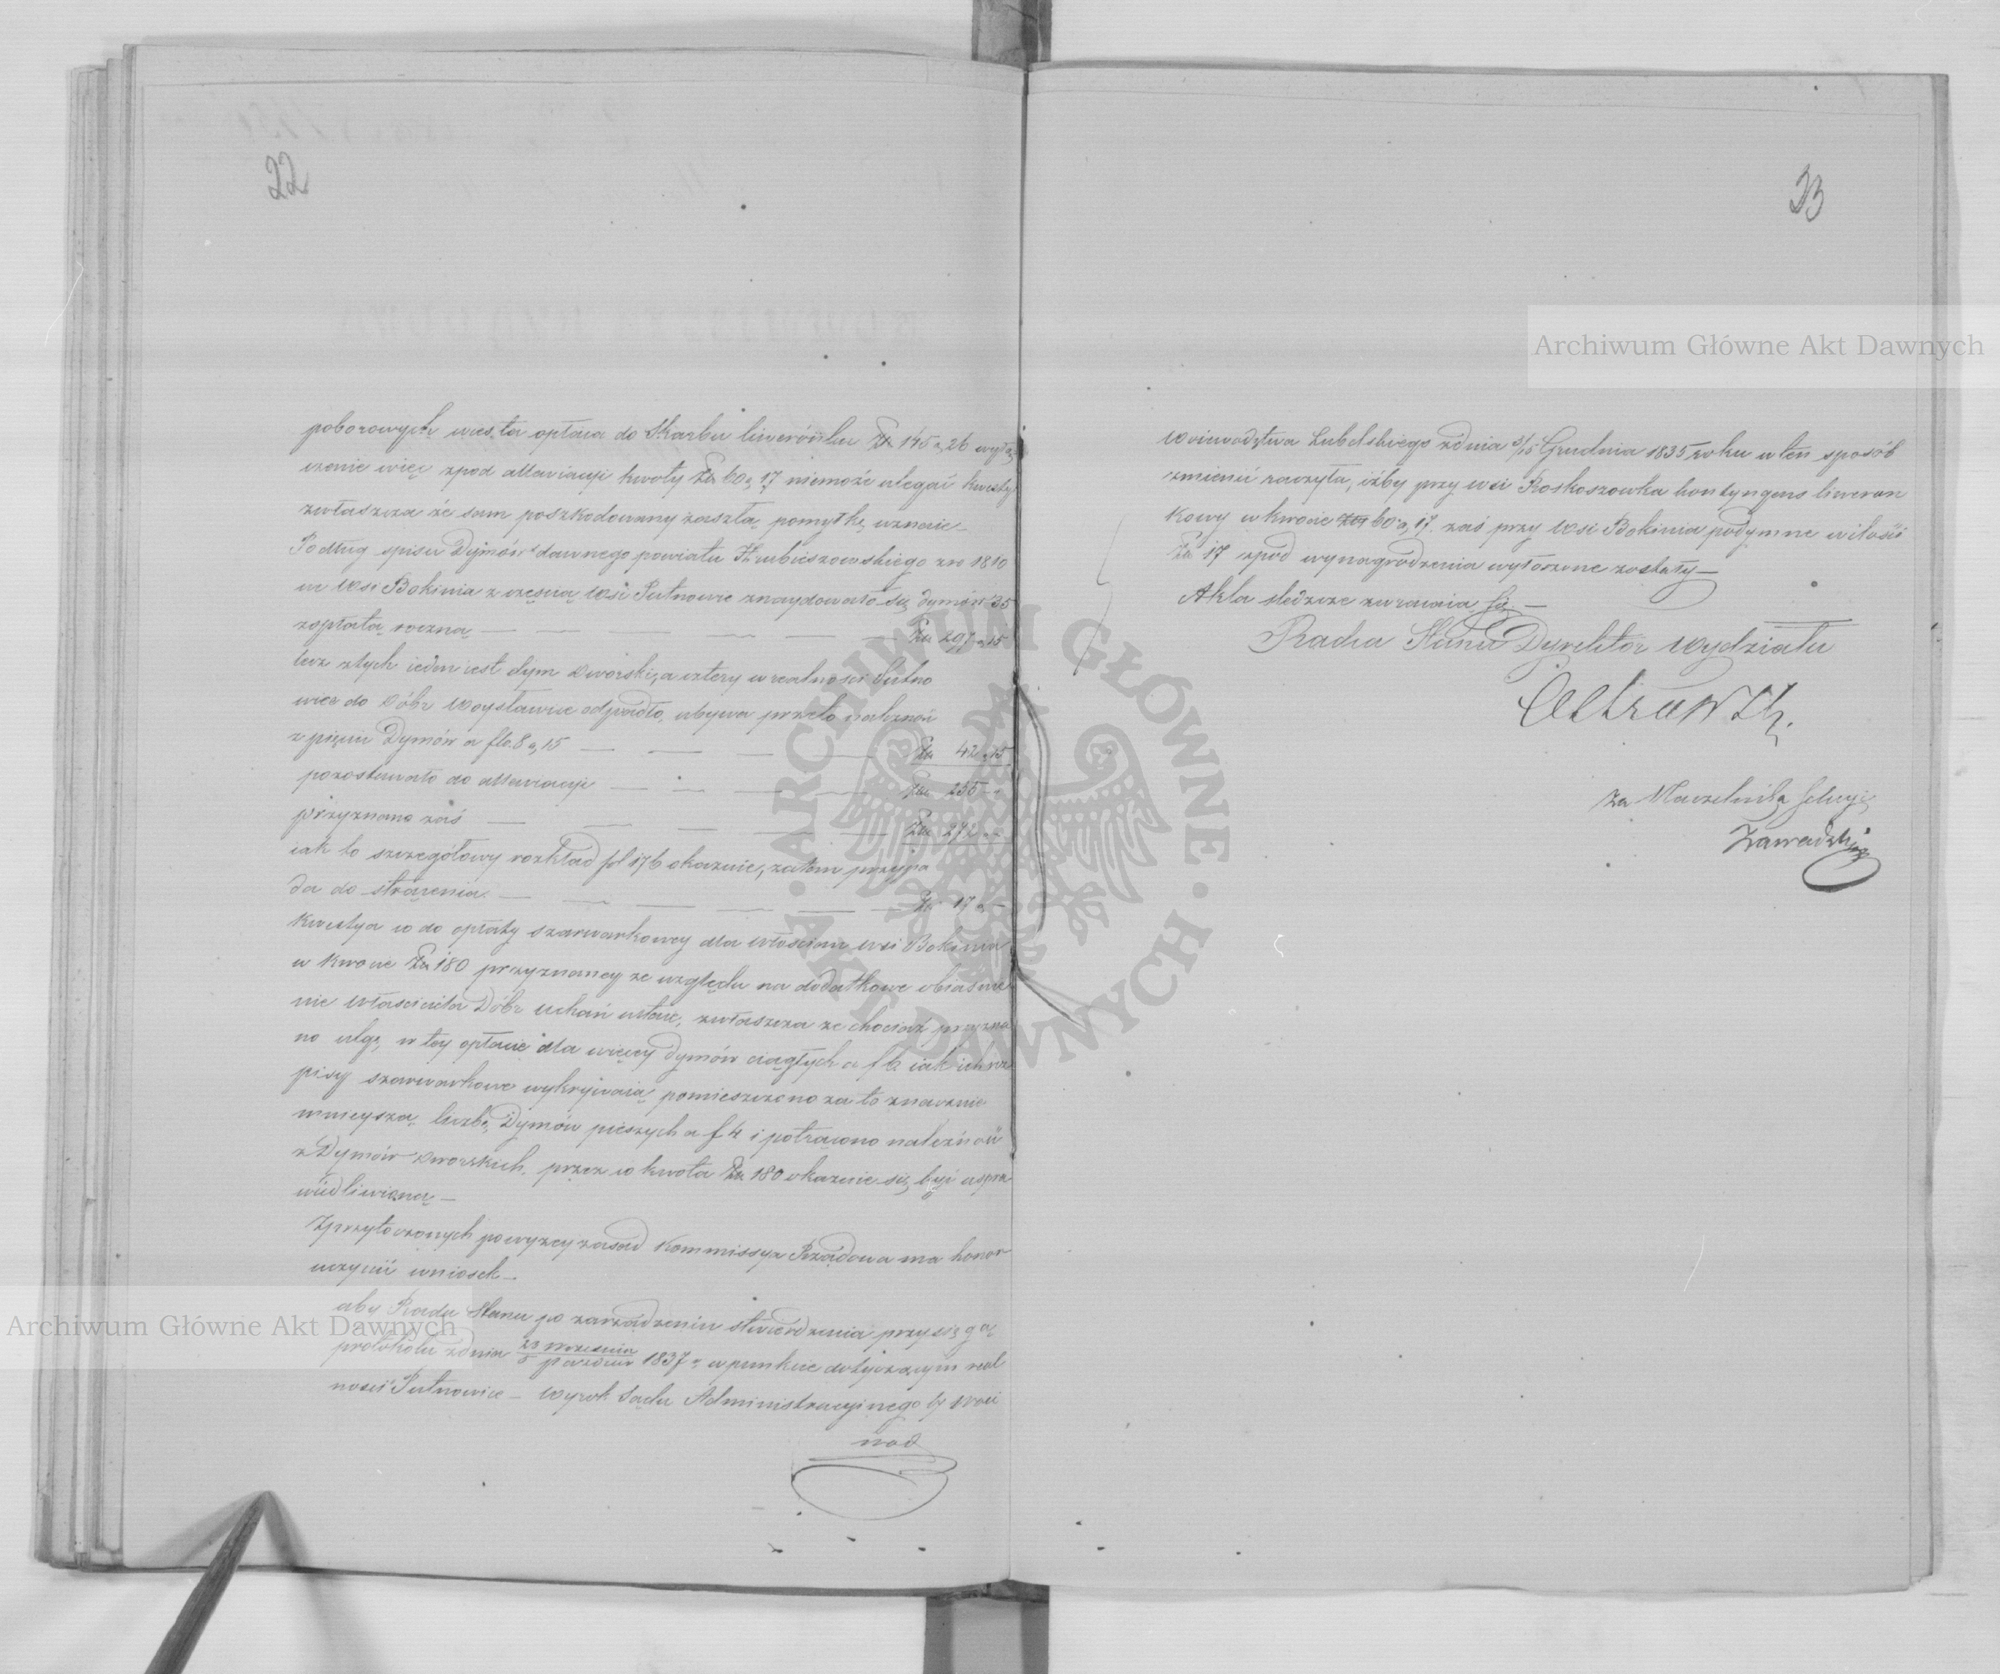 22
poborowych wieś ta opłaca do Skarbu liwerunku Zł 145 g 26 wyłą
czenie więc z pod allewiacyi kwoty Zł 60 g 17 niemoże ulegać kwesty
zwłaszcza że sam poszkodowany zaszłą pomyłkę uznaie –
Podług spisu Dymów dawnego powiatu Hrubieszowskiego z ro 1810
w wsi Bokinia z częścią wsi Putnowic znaydowało się dymów 35
z opłatą roczną — Zł 297 g 15
lecz z tych ieden iest dym dworski, a cztery w realności Putno
wice do dóbr Woysławice odpadło, ubywa przeto należność
z pięciu Dymów a fl. 8 g 15 — Zł 42 g 15
pozostawało do allewiacyi — Zł 255 –
przyznano zaś — Zł 272 –
iak to szczegółowy rozkład fol 176 okazuie, zatem przypa
da do strącenia — Zł 17 g –
Kwestya co do opłaty szarwarkowey dla włościan wsi Bokinia
w kwocie Zł 180 przyznaney ze względu na dodatkowe obiaśnie
nie właściciela Dóbr Uchań ustaie, zwłaszcza że chociaż przyzna
no ulgę w tey opłacie dla więcey dymów ciągłych a f 6 iak ich roz
pisy szarwarkowe wykrywaią pomieszczono za to znacznie
mnieyszą liczbę Dymów pieszych a f 4 i potrącono należność
z Dymów dworskich, przez co kwota Zł 180 okazuie się być uspra
wiedliwioną –
Z przytoczonych powyżey zasad Kommissya Rządowa ma honor
uczynić wniosek –
aby Rada Stanu po zarządzeniu stwierdzenia przysięgą
protokołu z dnia 23 września
5 paździer 1837 r w punkcie dotyczącym real
ności Putnowice – wyrok Sądu Administracyjnego by Woie
wod
33
Woiewodztwa Lubelskiego z dnia 3/15 Grudnia 1835 roku w ten sposób
zmienić raczyła, iżby przy wsi Roskoszowka kontyngens liweran
kowy w kwocie Zł 60 g 17. zaś przy wsi Bokinia podymne w ilości
Zł 17 z pod wynagrodzenia wyłączone zostały –
Akta śledcze zwracaią się –
Radca Stanu Dyrektor Wydziału
za Naczelnika Sekcyi
Zawadzki
Archiwum Główne Akt Dawnych
Archiwum Główne Akt Dawnych
ARCHIWUM GŁÓWNE AKT DAWNYCH